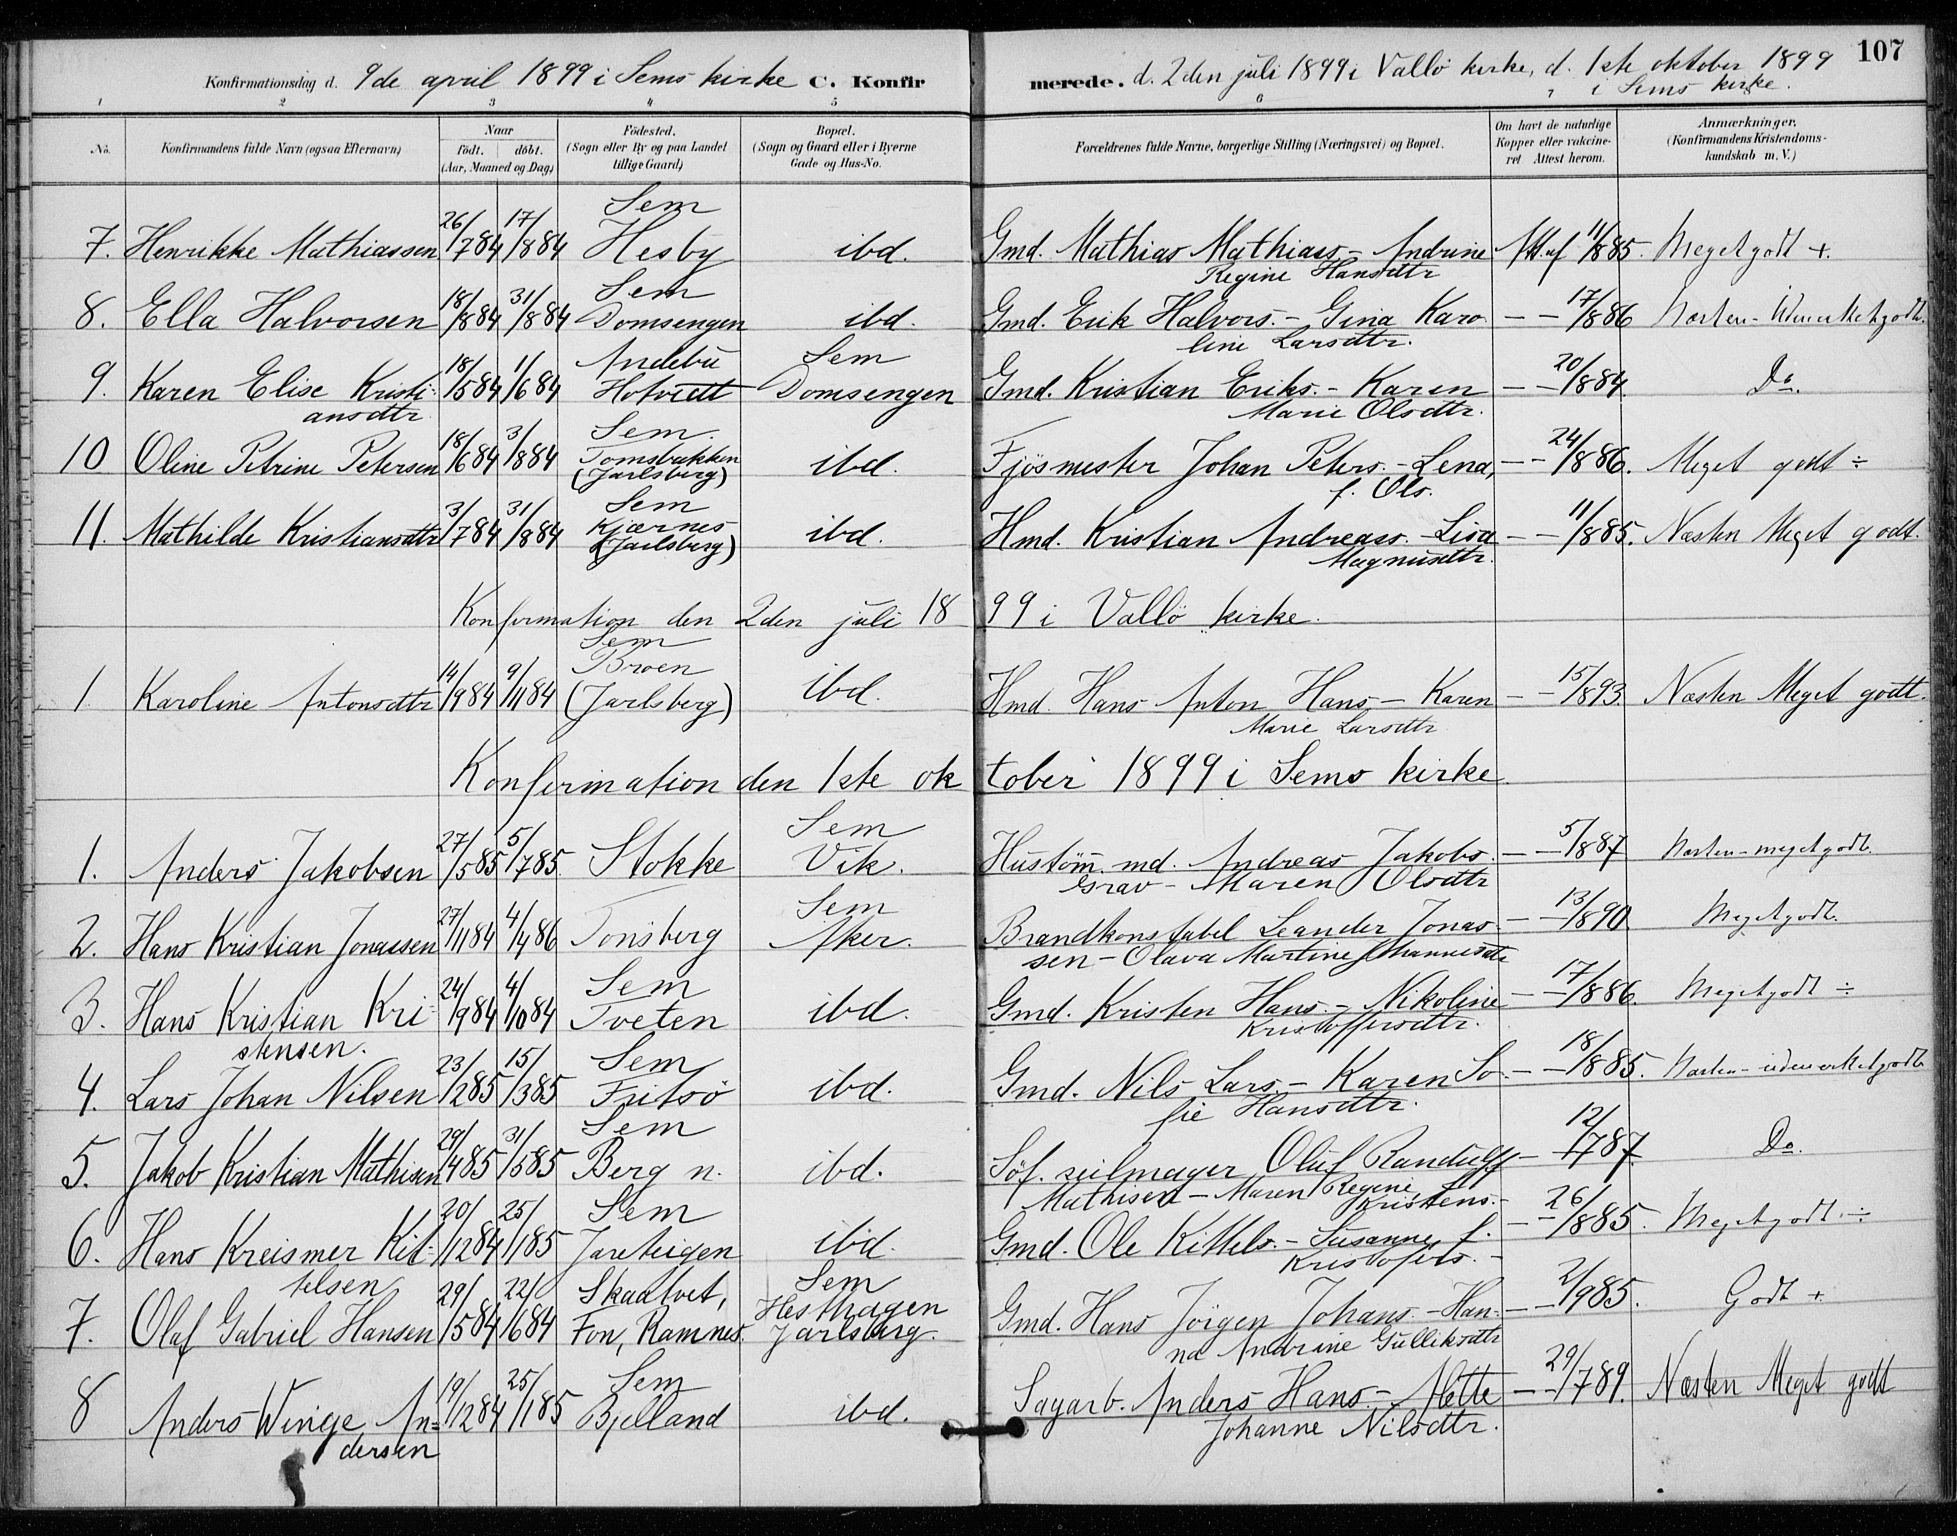 107
Konfirmationsdag d. 9de april 1899 i Sems kirke C. Konfirmerede. d. 2den juli 1899 i Vallö kirke, d. 1ste oktober 1899
i Sems kirke.
1 2 3 4 5 6 7 8
No. Konfirmandens fulde Navn (ogsaa Efternavn) Naar født. døbt. (Aar, Maaned og Dag) Fødested. (Sogn eller By og paa Landet tillige Gaard) Bopæl. (Sogn og Gaard eller i Byerne Gade og Hus-No. Forældrenes fulde Navne, borgerlige Stilling (Næringsvei) og Bopæl. Om havt de naturlige Kopper eller vakcineret Attest herom. Anmærkninger. (Konfirmandens Kristendomskundskab m. V.)
Sem
7. Henrikke Mathiassen 26/7 84 17/8 84 Hesby ibd. Gmd. Mathias Mathiass. - Andrine Att. af 11/8 85. Meget godt +.
Regine Hansdtr
Sem
8. Ella Halvorsen 18/8 84 31/8 84 Domsengen ibd. Gmd. Erik Halvors. - Gina Karo- — 17/8 86 Næsten - Udmerketgodt.
line Larsdtr.
Andebu Sem
9. Karen Elise Kristi- 18/5 84 1/6 84 Hotvedt Domsengen Gmd. Kristian Eriks. - Karen — 20/8 84. Do.
ansdtr Marie Olsdtr.
Sem.
10 Oline Petrine Petersen 18/6 84 3/8 84 Tomsbakken ibd. Fjösmester Johan Peters. - Lena, — 24/8 86. Meget godt ÷
(Jarlsberg) f. Ols.
Sem
11. Mathilde Kristiansdtr 3/7 84 31/8 84 Kjærnes ibd. Hmd. Kristian Andreass. - Lisa — 11/8 85. Næsten Meget godt.
(Jarlsberg) Magnusdtr.
Konfirmation den 2den juli 1899 i Vallö kirke.
Sem
Broen
1. Karoline Antonsdtr 14/9 84 9/11 84 (Jarlsberg) ibd. Hmd. Hans Anton Hans. - Karen — 15/8 93. Næsten Meget godt.
Marie Larsdtr
Konfirmation den 1ste oktober 1899 i Sems kirke
Sem
1. Anders Jakobsen 27/5 85 5/7 85. Stokke Vik. Hustöm. md. Andreas Jakobs. — 5/8 87 Næsten - meget godt.
Grav - Maren Olsdtr
Sem
2. Hans Kristian Jonassen 27/11 84 4/4 86 Tönsberg Aker. Brandkonstabel Leander Jonas- — 13/8 90 Meget godt.
sen - Olava Martine Johannesdtr
Sem
3. Hans Kristian Kri- 24/9 84 4/10 84 Tveten ibd. Gmd. Kristen Hans. - Nikoline — 17/8 86. Meget godt ÷
stensen. Kristoffersdtr.
Sem
4. Lars Johan Nilsen 23/2 85 15/3 85 Fritsö ibd. Gmd. Nils Lars. - Karen So- — 18/8 85. Næsten - udmerketgodt
fie Hansdtr.
Sem
5. Jakob Kristian Mathisen 29/4 85 31/5 85 Berg n. ibd. Söf. seilmager Oluf Randulff — 12/7 87. Do.
Mathisen - Maren Regine Kristens. -
Sem
6. Hans Kreismer Kit- 20/12 84 25/1 85 Jareteigen ibd. Gmd. Ole Kittels. - Susanne f. — 26/8 85. Meget godt ÷
telsen Kristofers. -
Skaatvet, Sem
7. Olaf Gabriel Hansen 29/5 84 22/6 84 Fon, Ramnes. Hesthagen Jarlsberg. Gmd. Hans Jörgen Johans. - Han- — 2/9 85. Godt +
na Andrine Gulliksdtr
Sem
8 Anders Winge An- 19/12 84 25/1 85 Bjelland ibd. Sagarb. Anders Hans. - Mette — 29/7 89. Næsten Meget godt
dersen Johanne Nilsdtr.